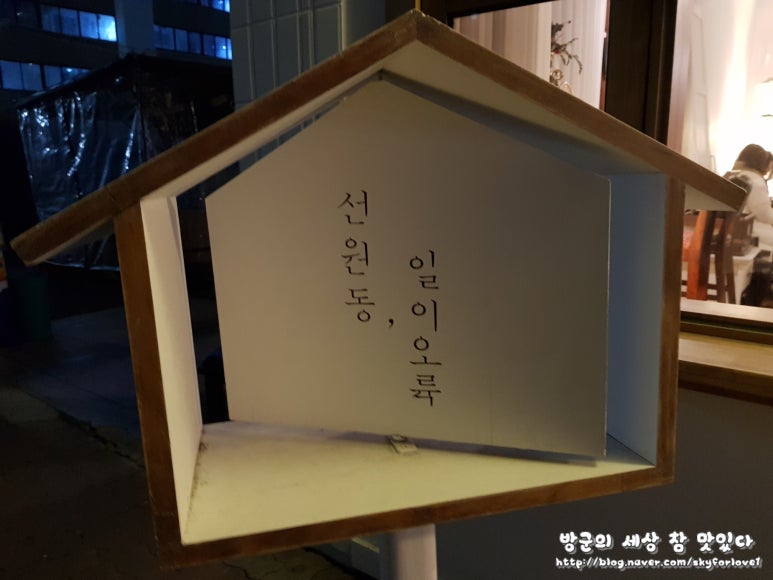 선원동,
일이오륙
방군의 세상 참 맛있다
http://blog.naver.com/skyforlove1